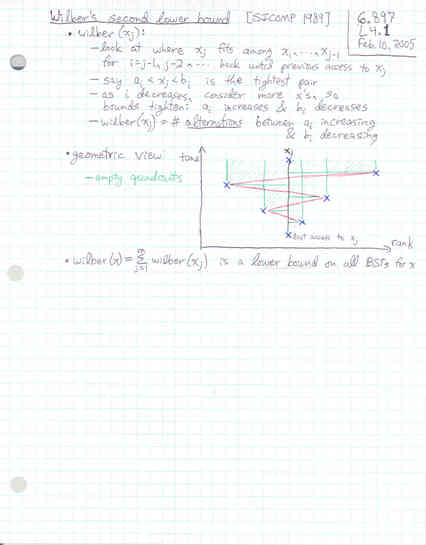 Wilber's second lower bound [SICOMP 1989]
6.897
L4.1
Feb. 10, 2005
• wilber (xj):
- look at where xj fits among xi, ..., xj-1
for i=j-1, j-2, ... back until previous access to xj
- say ai < xj < bi is the tightest pair
- as i decreases, consider more x's, so
bounds tighten: ai increases & bi decreases
- wilber(xj) = # alternations between ai increasing
& bi decreasing
• geometric view: time
xj
- empty quadrants
last access to xj
rank
• wilber(x) = Σ j=1 m wilber(xj) is a lower bound on all BSTs for x